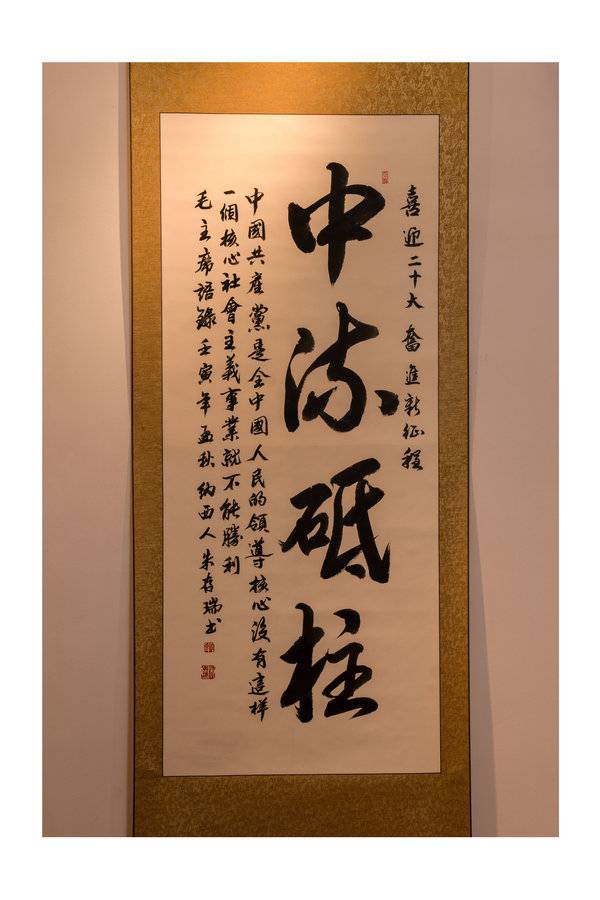 喜迎二十大 奮進新征程
中流砥柱
中國共產黨是全中國人民的領導核心沒有這样
一個核心社會主義事業就不能勝利
毛主席語錄 壬寅年孟秋 納西人朱存瑞书